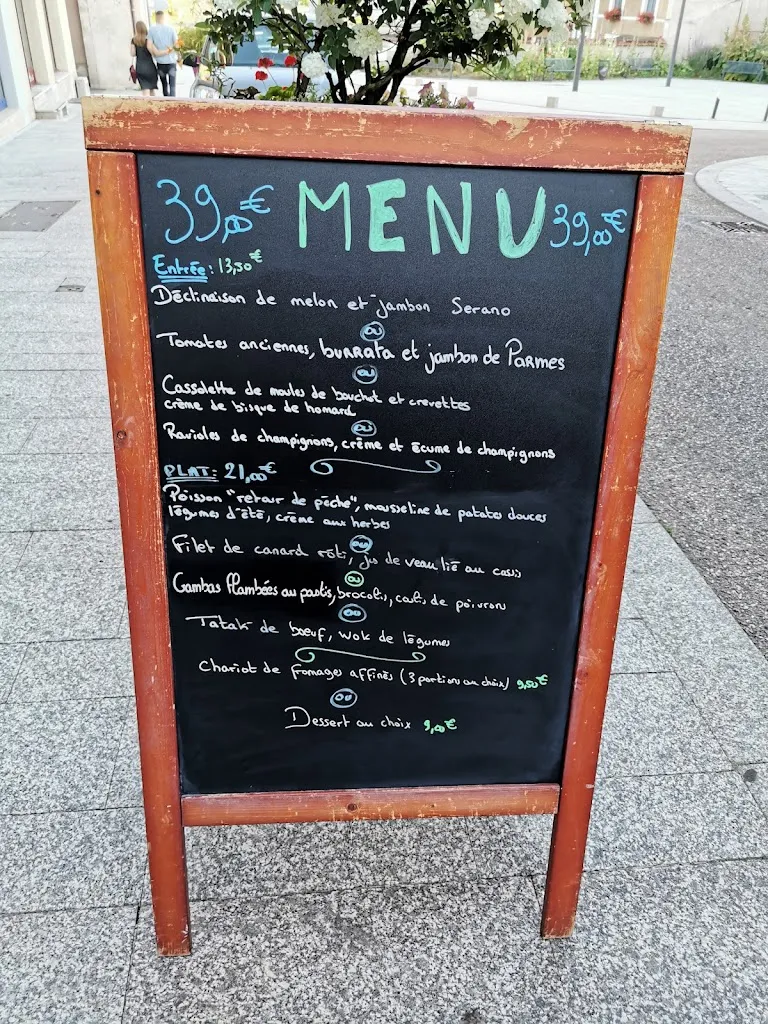 39,00€ MENU 39,00€
Entrée: 13,50€
Déclinaison de melon et jambon Serano
ou
Tomates anciennes, burrata et jambon de Parmes
ou
Cassolette de moules de bouchot et crevettes
crème de bisque de homard
ou
Ravioles de champignons, crème et écume de champignons
PLAT: 21,00€
Poisson "retour de pêche", mousseline de patates douces
légumes d'été, crème aux herbes
ou
Filet de canard rôti, jus de veau lié au cassis
ou
Gambas flambées au pastis, brocolis, coulis de poivrons
ou
Tataki de boeuf, wok de légumes
Chariot de fromages affinés (3 portions au choix) 9,50€
ou
Dessert au choix 9,00€